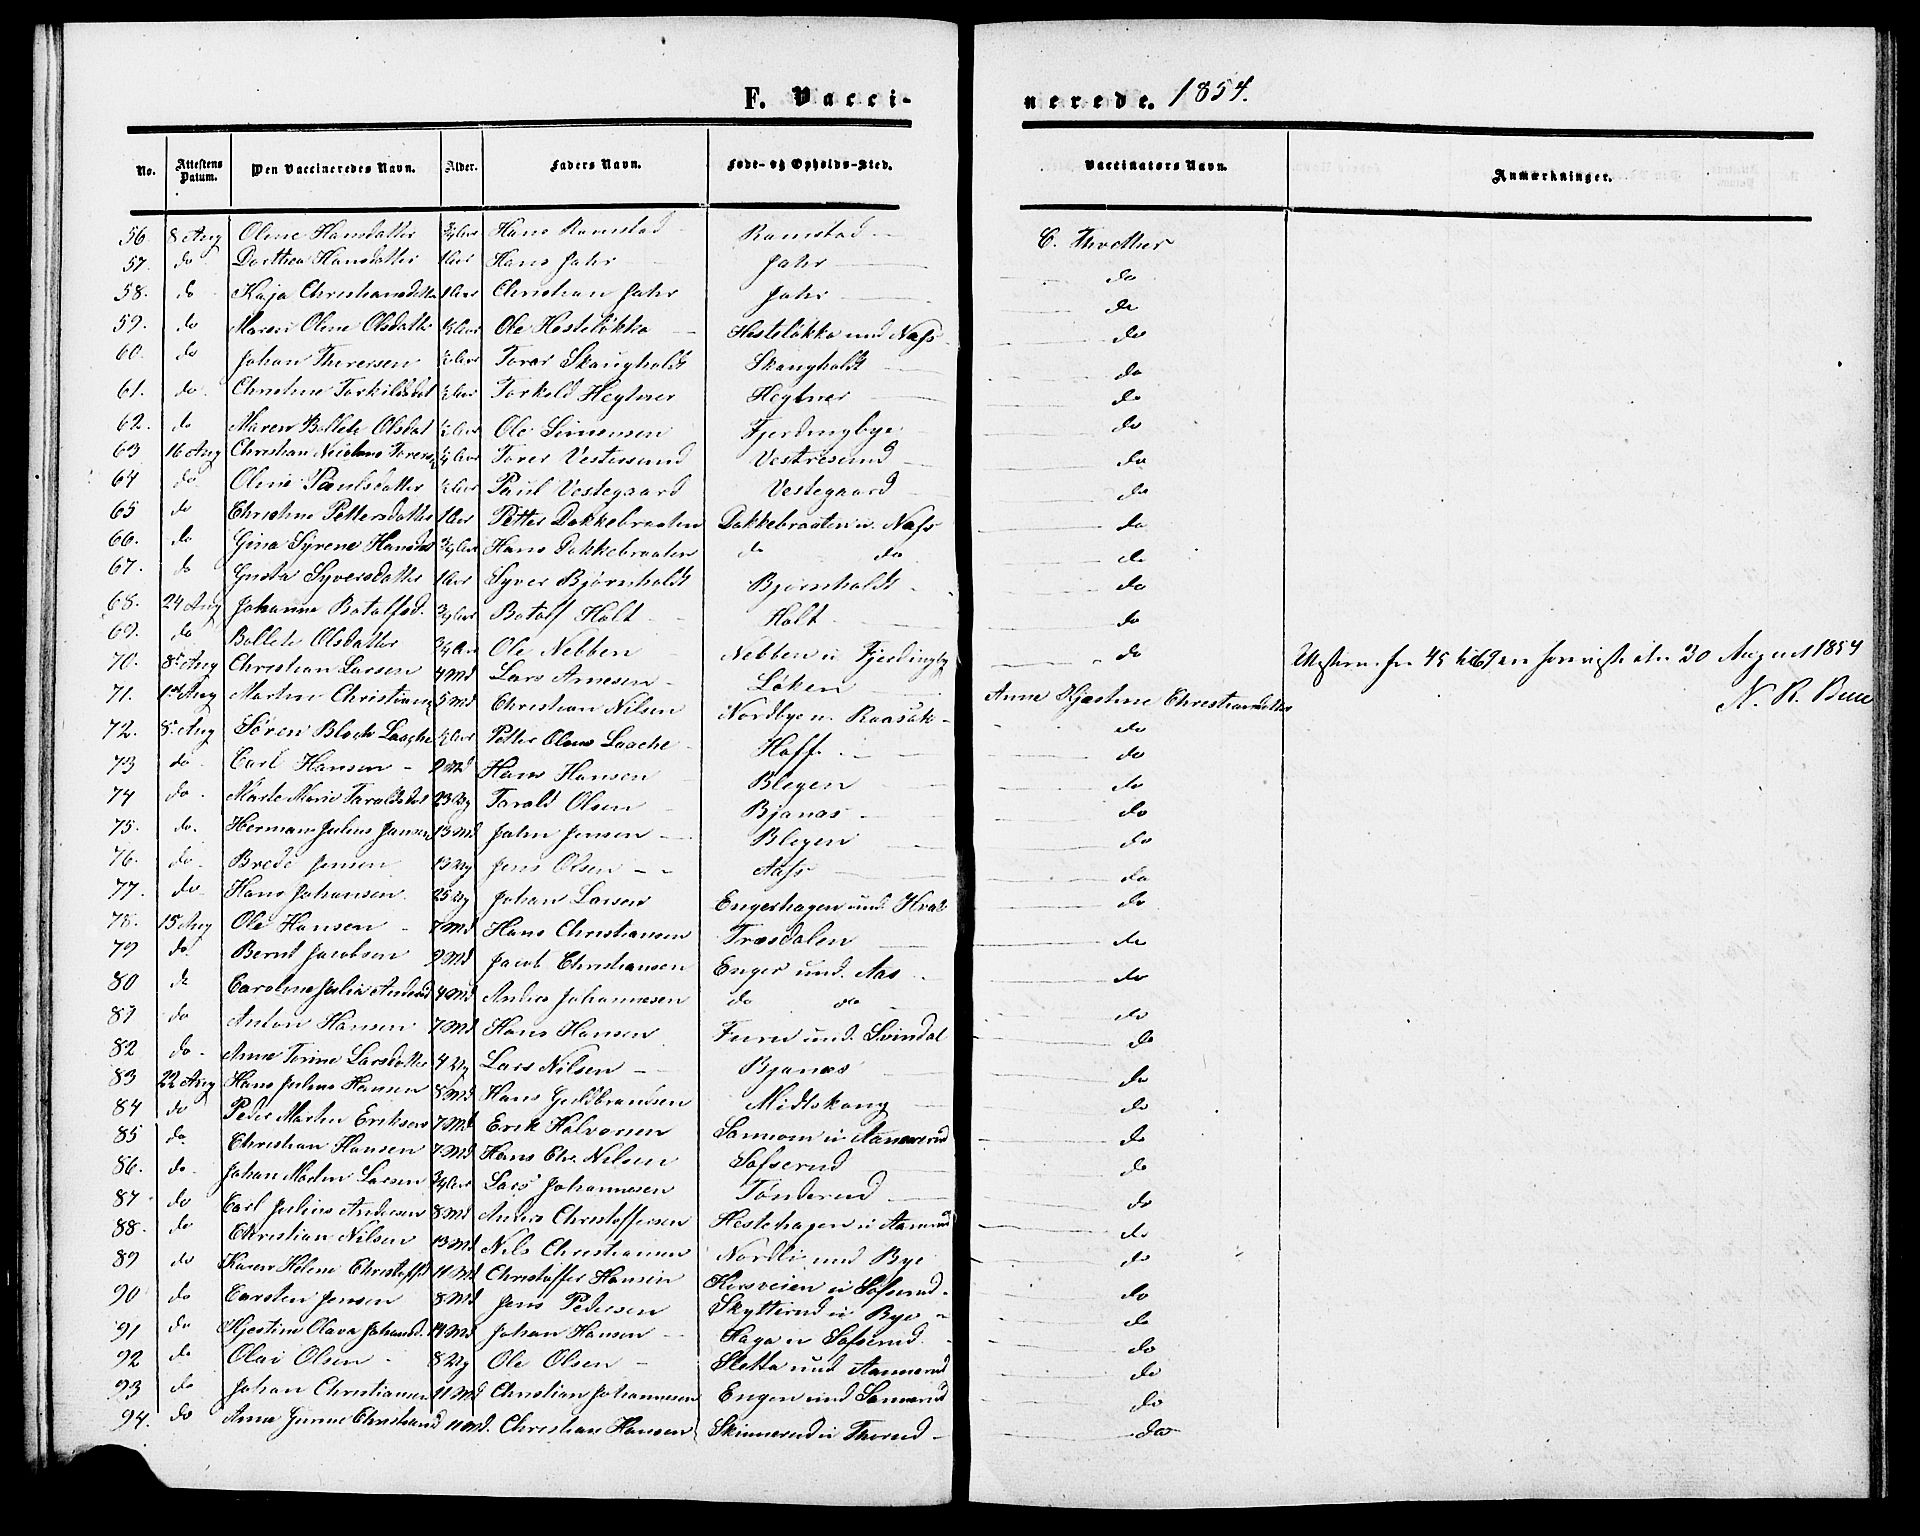 F. Vacci- nerede. 1854.
No. | Attestens Datum. | Den Vaccineredes Navn. | Alder. | Faders Navn. | Føde- og Opholds-Sted. | Vaccinators Navn. | Anmærkninger.
56 | 8 Aug | Oline Hansdatter | 3/4 Aar | Hans Ramstad | Ramstad | C.
57. | do | Dorthea Hansdatter | 1 Aar | Hans Jahr | Jahr | do
58. | do | Kaja Christiansdatter | 1 Aar | Christian Jahr | Jahr | do
59. | do | Maren Oline Olsdatter | Aar | Ole Hesteløkka | Hesteløkka und Næss | do
60. | do | Johan Thoresen | Aar | Torer Skaugholdt | Skaugholdt | do
61. | do | Christine Torkildsdat | Aar | Torkeld Hegtner | Hegtner | do
62. | do | Maren Bollete Olsdat | Aar | Ole Simensen | Fjerdingbye | do
63 | 16 Aug | Christian Torers | Aar | Torer Vestersund | Vestresund | do
64 | do | Oline Paulsdatter | Aar | Paul Vestegaard | Vestegaard | do
65 | do | Christine Pettersdatter | 1 Aar | Petter Dakkebraaten | Dakkebraaten u. Næss | do
66. | do | Gina Syrene Hansdat | 3/4 Aar | Hans Dakkebraaten | do do | do
67. | do | Gusta Syversdatter | 1 Aar | Syver Bjørnholdt | Bjørnholdt | do
68. | 24 Aug | Johanna Botolfsd. | 3/4 Aar | Botolf Holt | Holt | do
69. | do | Bollete Olsdatter | 3/4 Aar | Ole Nebben | Nebben u Fjerdingby | do | fra 45 til 69 ere 30 August 1854
70. | 8 Aug | Christian Larsen | 4 Md | Lars Arnesen | Løken | Anne Kjestine Christiansdatter | N. R. Bull
71. | 1st Aug | Martin Christians | 5 Md | Christian Nilsen | Nordbye u. Raasok | do
72. | 8 Aug | Søren Bloch Laache | Aar | Petter Olsen Laache | Hoff | do
73 | do | Carl Hansen | 9 Md | Hans Hansen | Blegen | do
74 | do | Marte Marie Taraldsdat | 23 Ug | Tarald Olsen | Bjanæs | do
75. | do. | Herman Julius Jansen | 13 Md | John Jensen | Blegen | do
76. | do | Brede Jensen | 13 Ug | Jens Olsen | Aass | do
77. | do | Hans Johansen | 25 Ug | Johan Larsen | Engerhagen und. Hval | do
78. | 15 Aug | Ole Hansen | 7 Md | Hans Christiansen | Træsdalen | do
79 | do. | Bernt Jacobsen | 9 Md | Jacob Christiansen | Enger und. Aas | do
80 | do | Caroline Julie Andersd | 4 Md | Anders Johannesen | do do | do
81 | do | Anton Hansen | 7 Md | Hans Hansen | Furu und. Svindal | do
82 | do | Anne Torine Larsdatter | 4 Ug | Lars Nilsen | Bjanæs | do
83 | 22 Aug | Hans Julius Hansen | 8 Md | Hans Guldbrandsen | Midtskoug | do
84 | do | Peder Martin Eriksen | 7 Md | Erik Halvorsen | Sannom u | do
85 | do | Christian Hansen | 7 Md | Hans Chr. Nilsen | Søfserud | do
86. | do | Johan Martin Larsen | 3/4 Aar | Lars Johannesen | Tønderud | do
87 | do | Carl Julius Andersen | 8 Md | Anders Christoffersen | Hestehagen u Aamerud | do
88. | do | Christian Nilsen | 13 Md | Nils Christiansen | Nordli und Bye | do
89 | do | Karen Helene Christoffsd | 11 Md | Christoffer Hansen | Korsveien u Søfserud | do
90 | do | Carsten Jensen | 8 Md | Jens Pedersen | Skytterud u Bye | do
91 | do | Kjestine Olava Johansd. | 14 Md | Johan Hansen | Haga u Søfserud | do
92 | do | Olai Olsen | 8 Ug | Ole Olsen | Sletta und Aamerud | do
93 | do | Johan Christiansen | 11 Md | Christian Johannesen | Engen und | do
94. | do | Anne Gunne Christiansd | 11 Md. | Christian Hansen | Skinnerud u Thorud | do